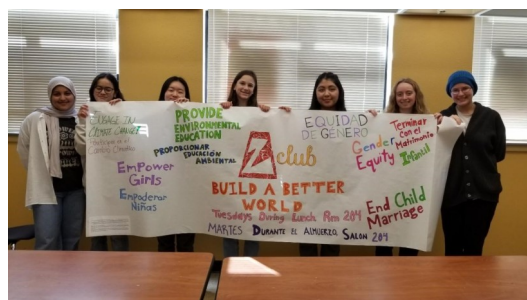 ENGAGE IN
CLIMATE CHANGE
Participar en el
Cambio Climático
EmPower
Girls
Empoderar
Niñas
PROVIDE
ENVIRONMENTAL
EDUCATION
PROPORCIONAR
EDUCACIÓN
AMBIENTAL
Z club
BUILD A BETTER
WORLD
Tuesdays During Lunch Rm 204
MARTES DURANTE EL ALMUERZO SALON 204
EQUIDAD
DE GÉNERO
Gender
Equity
Terminar
con el
Matrimonio
Infantil
End Child
Marriage